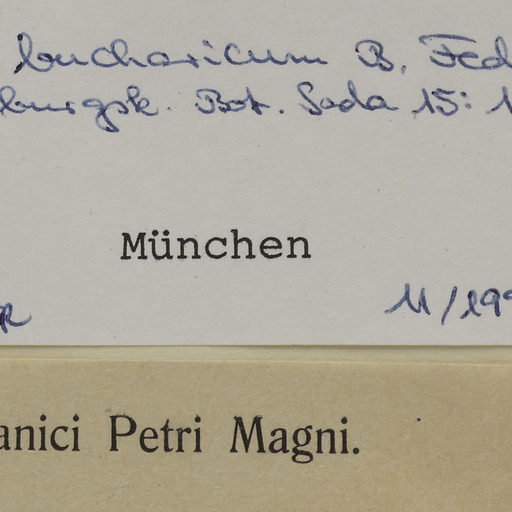 bucharicum B. Fed
burgsk. Bot. Sada 15: 1
München
11/199
anici Petri Magni.